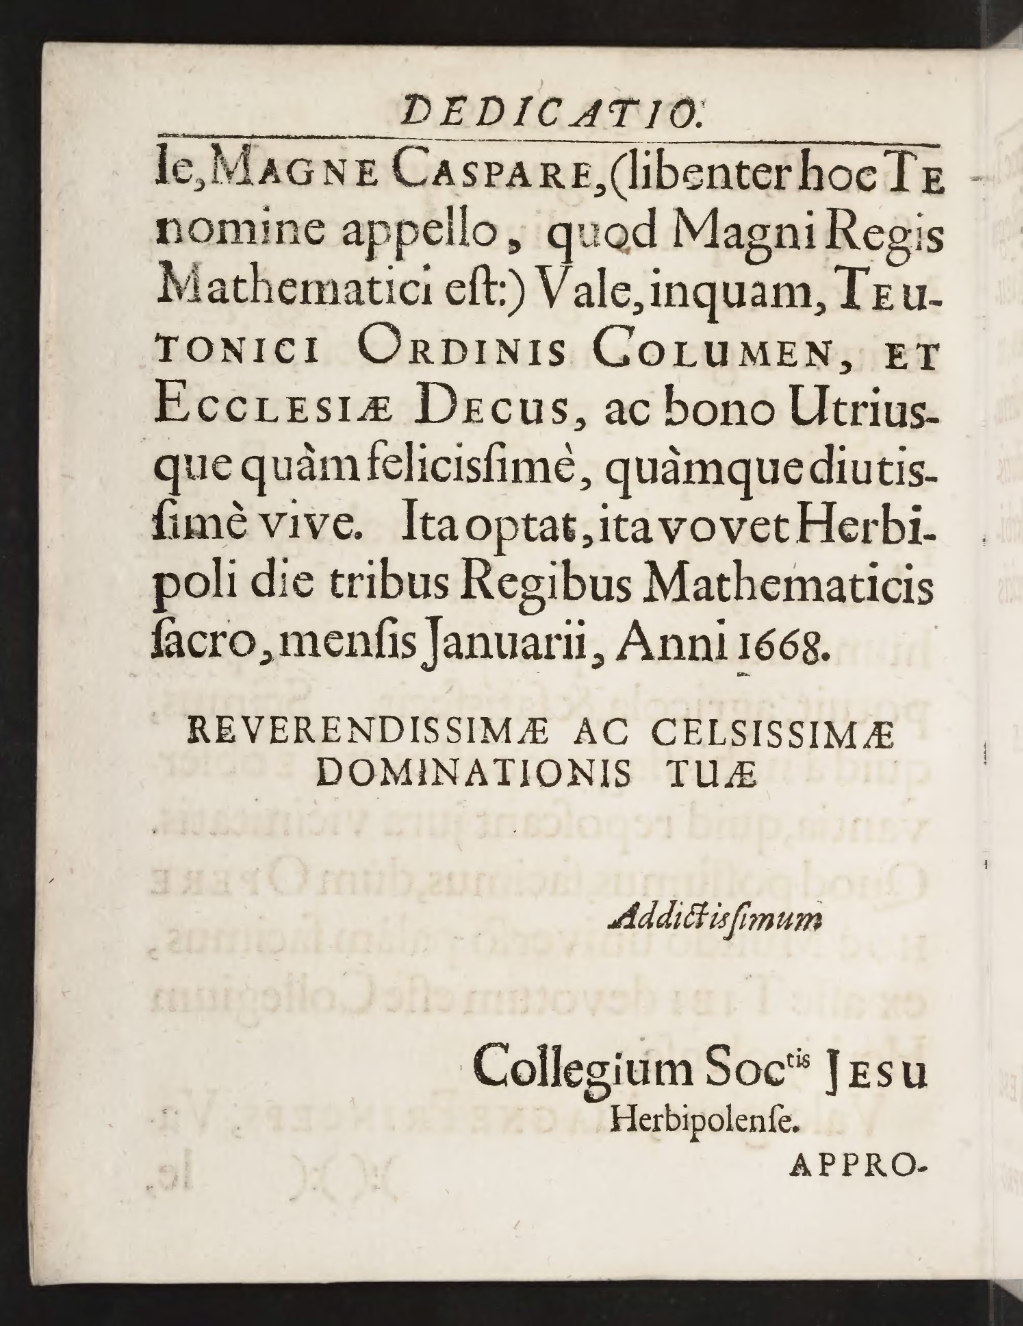 DEDICATIO.
le, MAGNE CASPARE, (libenter hoc TE
nomine appello, quod Magni Regis
Mathematici eſt:) Vale, inquam, TEU-
TONICI ORDINIS COLUMEN, ET
ECCLESIÆ DECUS, ac bono Utrius-
que quàm felicisſimè, quàmque diutis-
ſimè vive. Ita optat, ita vovet Herbi-
poli die tribus Regibus Mathematicis
ſacro, menſis Januarii, Anni 1668.
REVERENDISSIMÆ AC CELSISSIMÆ
DOMINATIONIS TUÆ
Addictisſimum
Collegium Soc^tis JESU
Herbipolenſe.
APPRO-